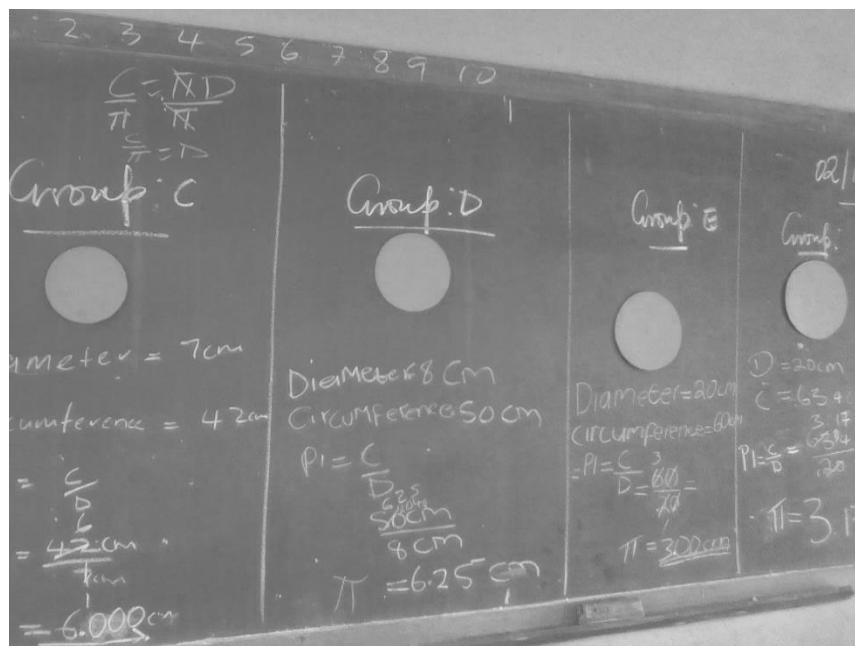 2 3 4 5 6 7 8 9 10
C = πD
π π
C
π = D
Group: C
ameter = 7cm
cumference = 42cm
= C
D
6
= 42cm
7cm
1
= 6.000cm
Group: D
Diameter = 8 cm
Circumference 50 cm
PI = C
D
6.25
50cm
8cm
π = 6.25 cm
Group: E
Diameter = 20cm
Circumference = 60cm
= PI = C
D = 60 =
20
3
1
π = 3.00cm
02/
Group:
D = 20cm
C = 63.4
3.17
PI = C = 63.4
D 20
π = 3.1